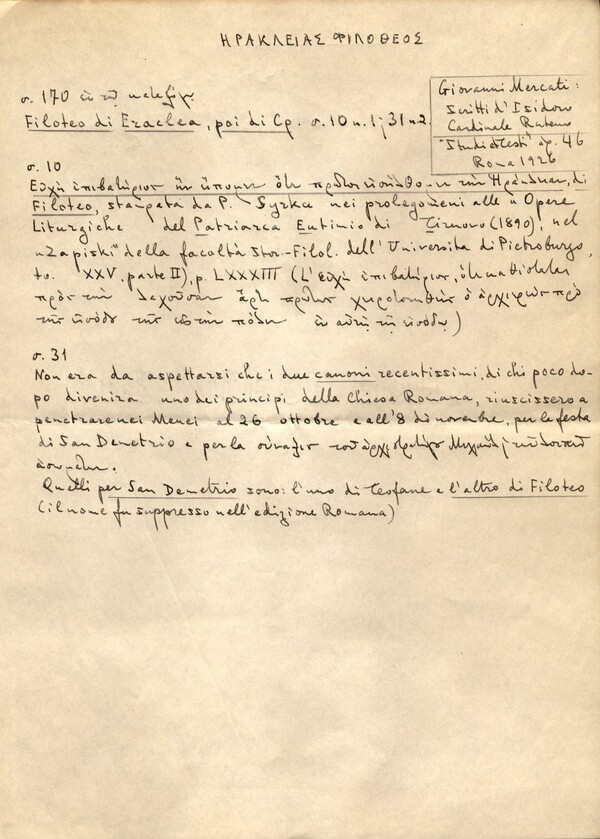 ΗΡΑΚΛΕΙΑΣ ΦΙΛΟΘΕΟΣ
Giovanni Mercati:
Scritti d'Isidoro
Cardinale Ruteno
"Studi e Testi" ap. 46
Roma 1926
σ. 170 ἐν τῷ
Filoteo di Eraclea, poi di Cp. σ. 10 n. 1; 31 n 2
σ. 10
Εὐχὴ ἐπιβατήριος ἣν ὅτε πρῶτον τὴν di
Filoteo, stampata da P. Syrku nei prolegomeni alle "Opere
Liturgiche del Patriarca Eutimio di Tirnovo (1890), nel
"Zapiski" della facoltà Stor-Filol. dell'Universita di Pietroburgo,
to. XXV, parte II), p. LXXXIII (L'εὐχὴ ἐπιβατήριος,
πρὸς τὴν λαχοῦσαν ἄρτι πρώτως ὁ ἀρχιερεὺς πρὸ
τῆς εἰσόδου τῆς εἰς τὴν πόλιν ἐν αὐτῇ τῇ εἰσόδῳ)
σ. 31
Non era da aspettarsi che i due canoni recentissimi, di chi poco do-
po divenira uno dei principi della Chiesa Romana, riuscissero a
penetrare nei Menei al 26 ottobre e all'8 di novembre, per le festa
di San Demetrio e per la σύναξις τοῦ ἀρχιστρατήγου Μιχαὴλ
ἀσωμάτων.
Quelli per San Demetrio sono: l'uno di Teofane e l'altro di Filoteo
(il nome fu suppresso nell'edizione Romana)